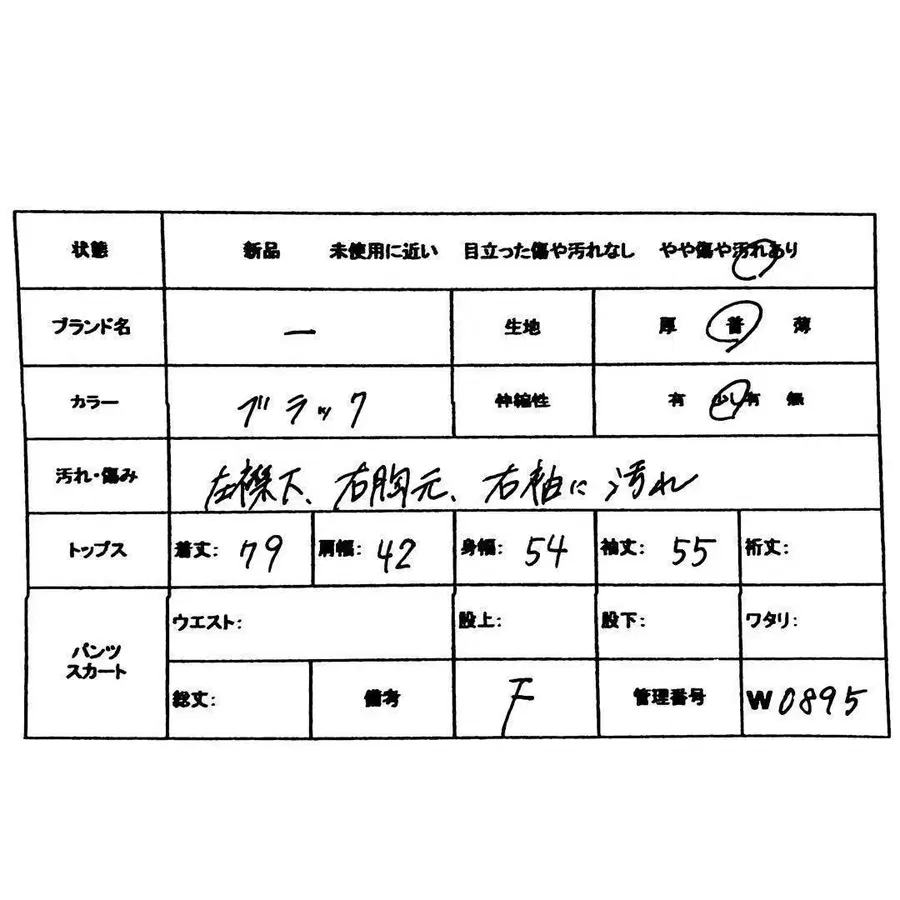 状態 新品 未使用に近い 目立った傷や汚れなし やや傷や汚れあり
ブランド名 ー 生地 厚 普 薄
カラー ブラック 伸縮性 有 少し有 無
汚れ・傷み 左襟下、右胸元、右袖に汚れ
トップス 着丈: 79 肩幅: 42 身幅: 54 袖丈: 55 裄丈:
パンツ スカート ウエスト: 股上: 股下: ワタリ:
総丈: 備考 F 管理番号 W0895